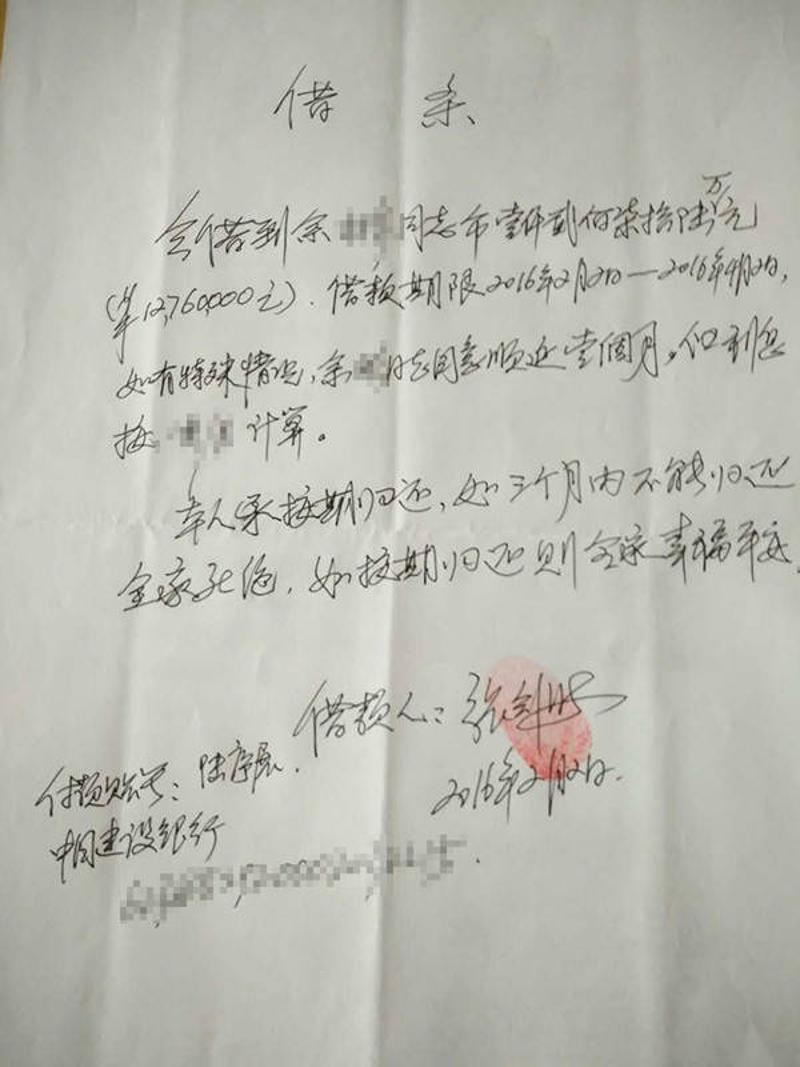 借 条
今借到余 同志币壹仟贰佰柒拾陆万元
(¥12,760,000元).借款期限2016年2月2日—2016年4月2日,
如有特殊情况,余 同志同意顺延壹個月,但利息
按 计算。
本人承按期归还,如三个月内不能归还
全家死绝.如按期归还则全家幸福平安.
借款人:张剑
2016年2月2日.
付款账号:陆序辰.
中国建设银行